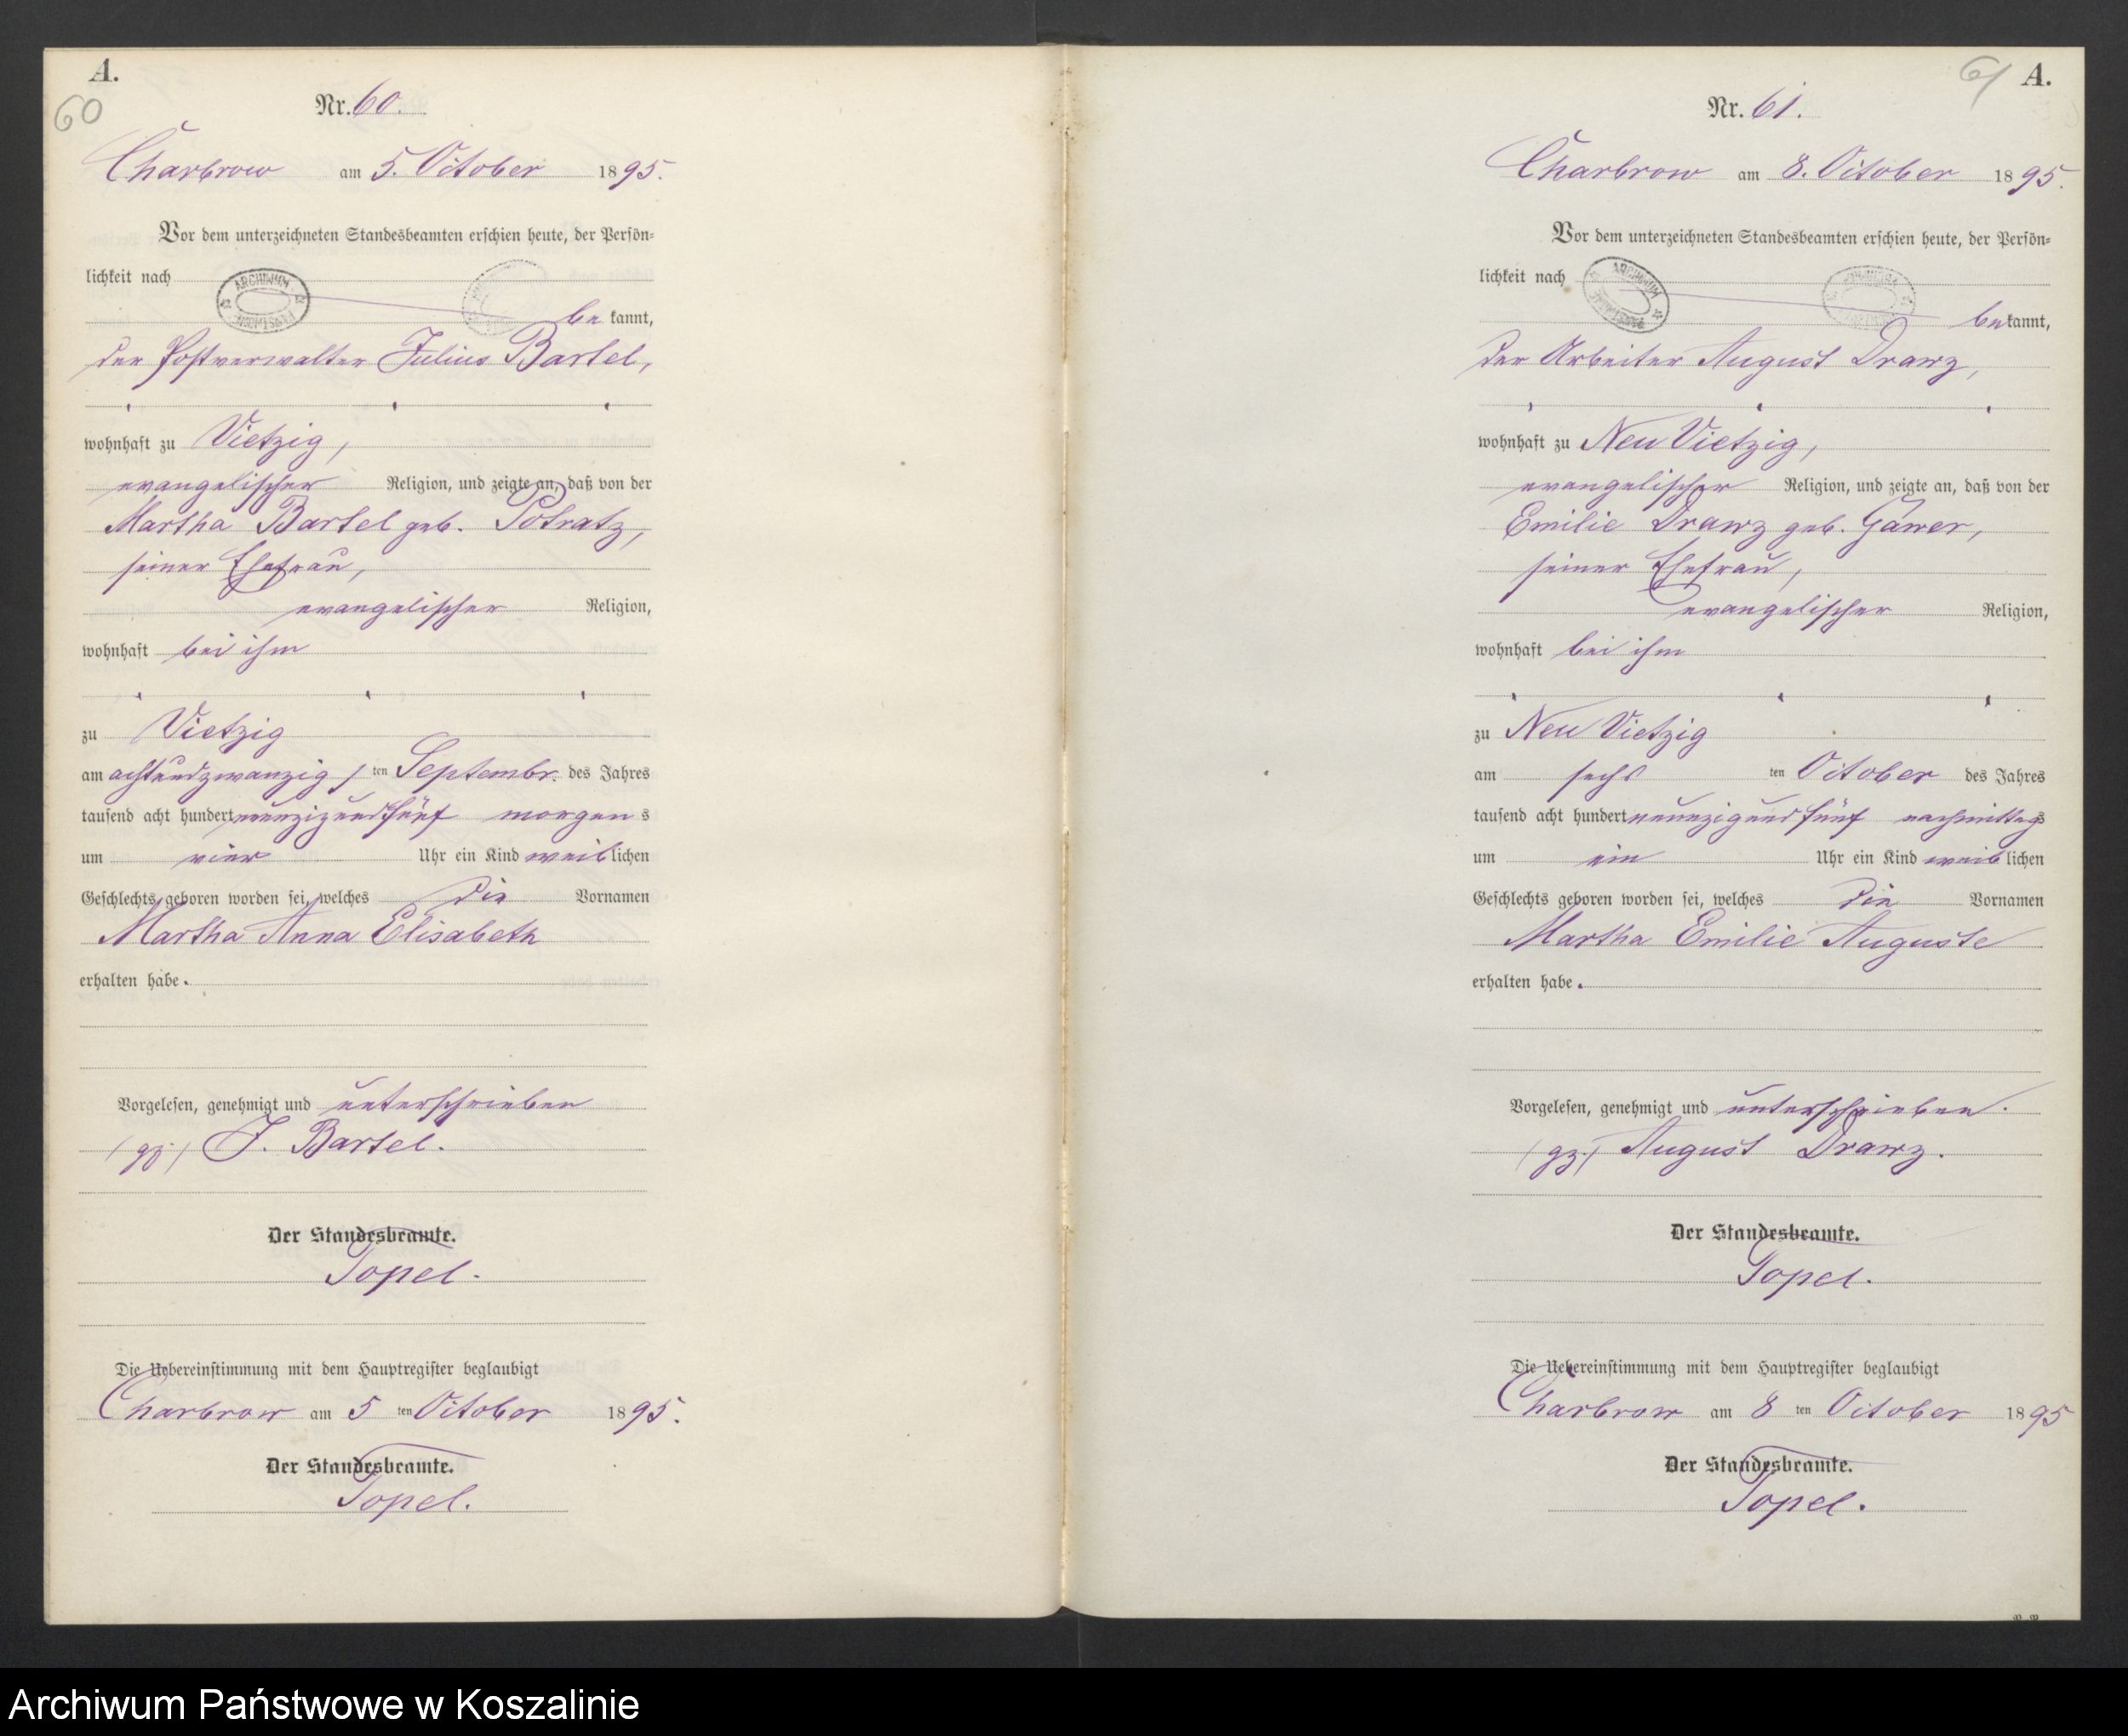 A.
60
Nr. 60.
Charbrow am 5. October 1895.
Vor dem unterzeichneten Standesbeamten erschien heute, der Persön-
lichkeit nach
ARCHIWUM
be kannt,
der Postverwalter Julius Bartel,
wohnhaft zu Vietzig,
evangelischer Religion, und zeigte an, daß von der
Martha Bartel geb. Potratz,
seiner Ehefrau,
evangelischer Religion,
wohnhaft bei ihm
zu Vietzig
am achtundzwanzig ten Septembr. des Jahres
tausend acht hundert neunzigundfünf morgen s
um vier Uhr ein Kind weib lichen
Geschlechts geboren worden sei, welches die Vornamen
Martha Anna Elisabeth
erhalten habe.
Vorgelesen, genehmigt und unterschrieben
(gz.) J. Bartel.
Der Standesbeamte.
Topel.
Die Uebereinstimmung mit dem Hauptregister beglaubigt
Charbrow am 5 ten October 1895.
Der Standesbeamte.
Topel.
61 A.
Nr. 61.
Charbrow am 8. October 1895.
Vor dem unterzeichneten Standesbeamten erschien heute, der Persön-
lichkeit nach
ARCHIWUM
be kannt,
der Arbeiter August Drawz,
wohnhaft zu Neu Vietzig,
evangelischer Religion, und zeigte an, daß von der
Emilie Drawz geb. Gawer,
seiner Ehefrau,
evangelischer Religion,
wohnhaft bei ihm
zu Neu Vietzig
am sechs ten October des Jahres
tausend acht hundert neunzigundfünf nachmittags
um ein Uhr ein Kind weib lichen
Geschlechts geboren worden sei, welches die Vornamen
Martha Emilie Auguste
erhalten habe.
Vorgelesen, genehmigt und unterschrieben.
(gz.) August Drawz.
Der Standesbeamte.
Topel.
Die Uebereinstimmung mit dem Hauptregister beglaubigt
Charbrow am 8 ten October 1895
Der Standesbeamte.
Topel.
Archiwum Państwowe w Koszalinie